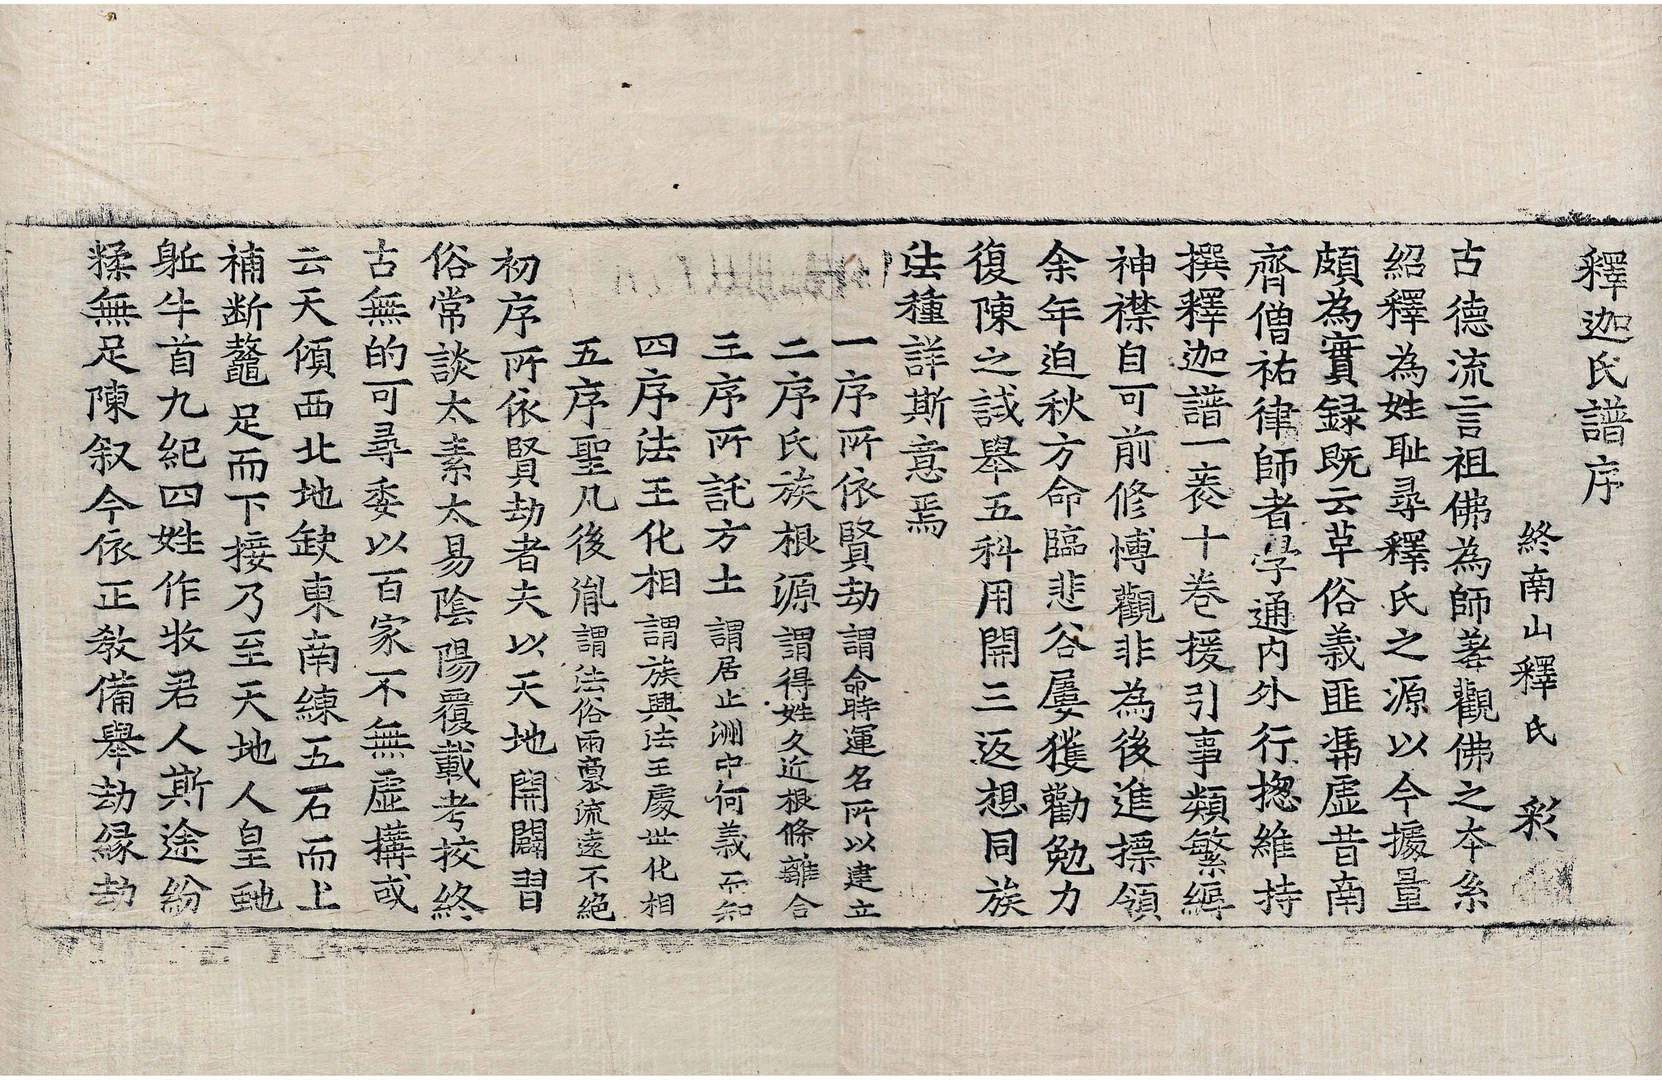 釋迦氏譜序
終南山釋氏 彩
古德流言祖佛為師羞觀佛之夲系
紹釋為姓耻尋釋氏之源以今據量
頗為實録既云草俗義匪憑虛昔南
齊僧祐律師者學通内外行揔維持
撰釋迦譜一袠十巻援引事類繁縟
神襟自可前修愽觀非為後進摽領
余年迫秋方命臨悲谷屢獲勸勉力
復陳之試舉五科用開三返想同族
法種詳斯意焉
一序所依賢劫謂命時運名所以建立
二序氏族根源謂得姓久近根條離合
三序所託方土謂居止洲中何義而知
四序法王化相謂族興法王慶世化相
五序聖凡後胤謂法俗兩裏流遠不絶
初序所依賢劫者夫以天地開闢習
俗常談太素太易陰陽覆載考挍終
古無的可尋委以百家不無虛搆或
云天傾西北地缺東南練五石而上
補断鼇足而下接乃至天地人皇虵
躯牛首九紀四姓作牧君人斯途紛
糅無足陳叙今依正教備舉劫縁劫